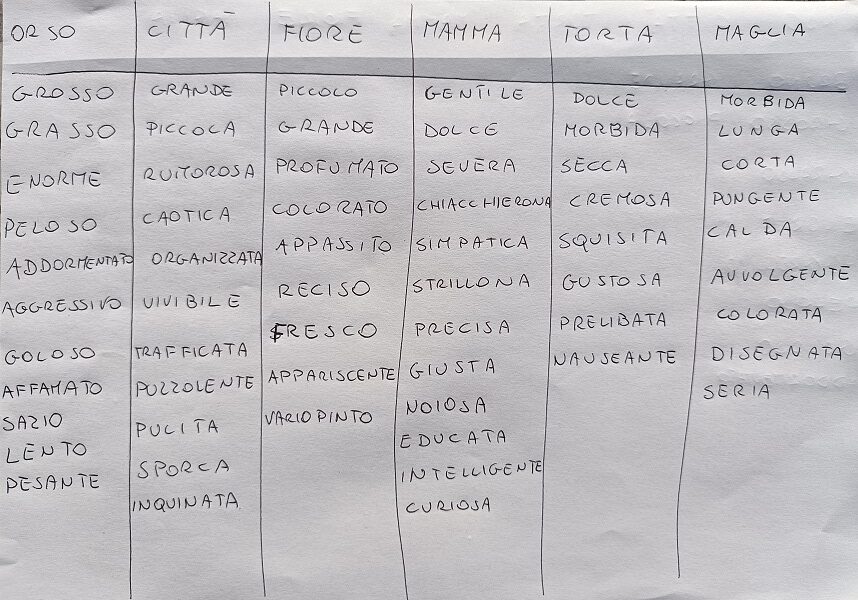 ORSO CITTÀ FIORE MAMMA TORTA MAGLIA
GROSSO GRANDE PICCOLO GENTILE DOLCE MORBIDA
GRASSO PICCOLA GRANDE DOLCE MORBIDA LUNGA
ENORME RUMOROSA PROFUMATO SEVERA SECCA CORTA
PELOSO CAOTICA COLORATO CHIACCHIERONA CREMOSA PUNGENTE
ADDORMENTATO ORGANIZZATA APPASSITO SIMPATICA SQUISITA CALDA
AGGRESSIVO VIVIBILE RECISO STRILLONA GUSTOSA AVVOLGENTE
GOLOSO TRAFFICATA FRESCO PRECISA PRELIBATA COLORATA
AFFAMATO PUZZOLENTE APPARISCENTE GIUSTA NAUSEANTE DISEGNATA
SAZIO PULITA VARIOPINTO NOIOSA SERIA
LENTO SPORCA EDUCATA
PESANTE INQUINATA INTELLIGENTE
CURIOSA